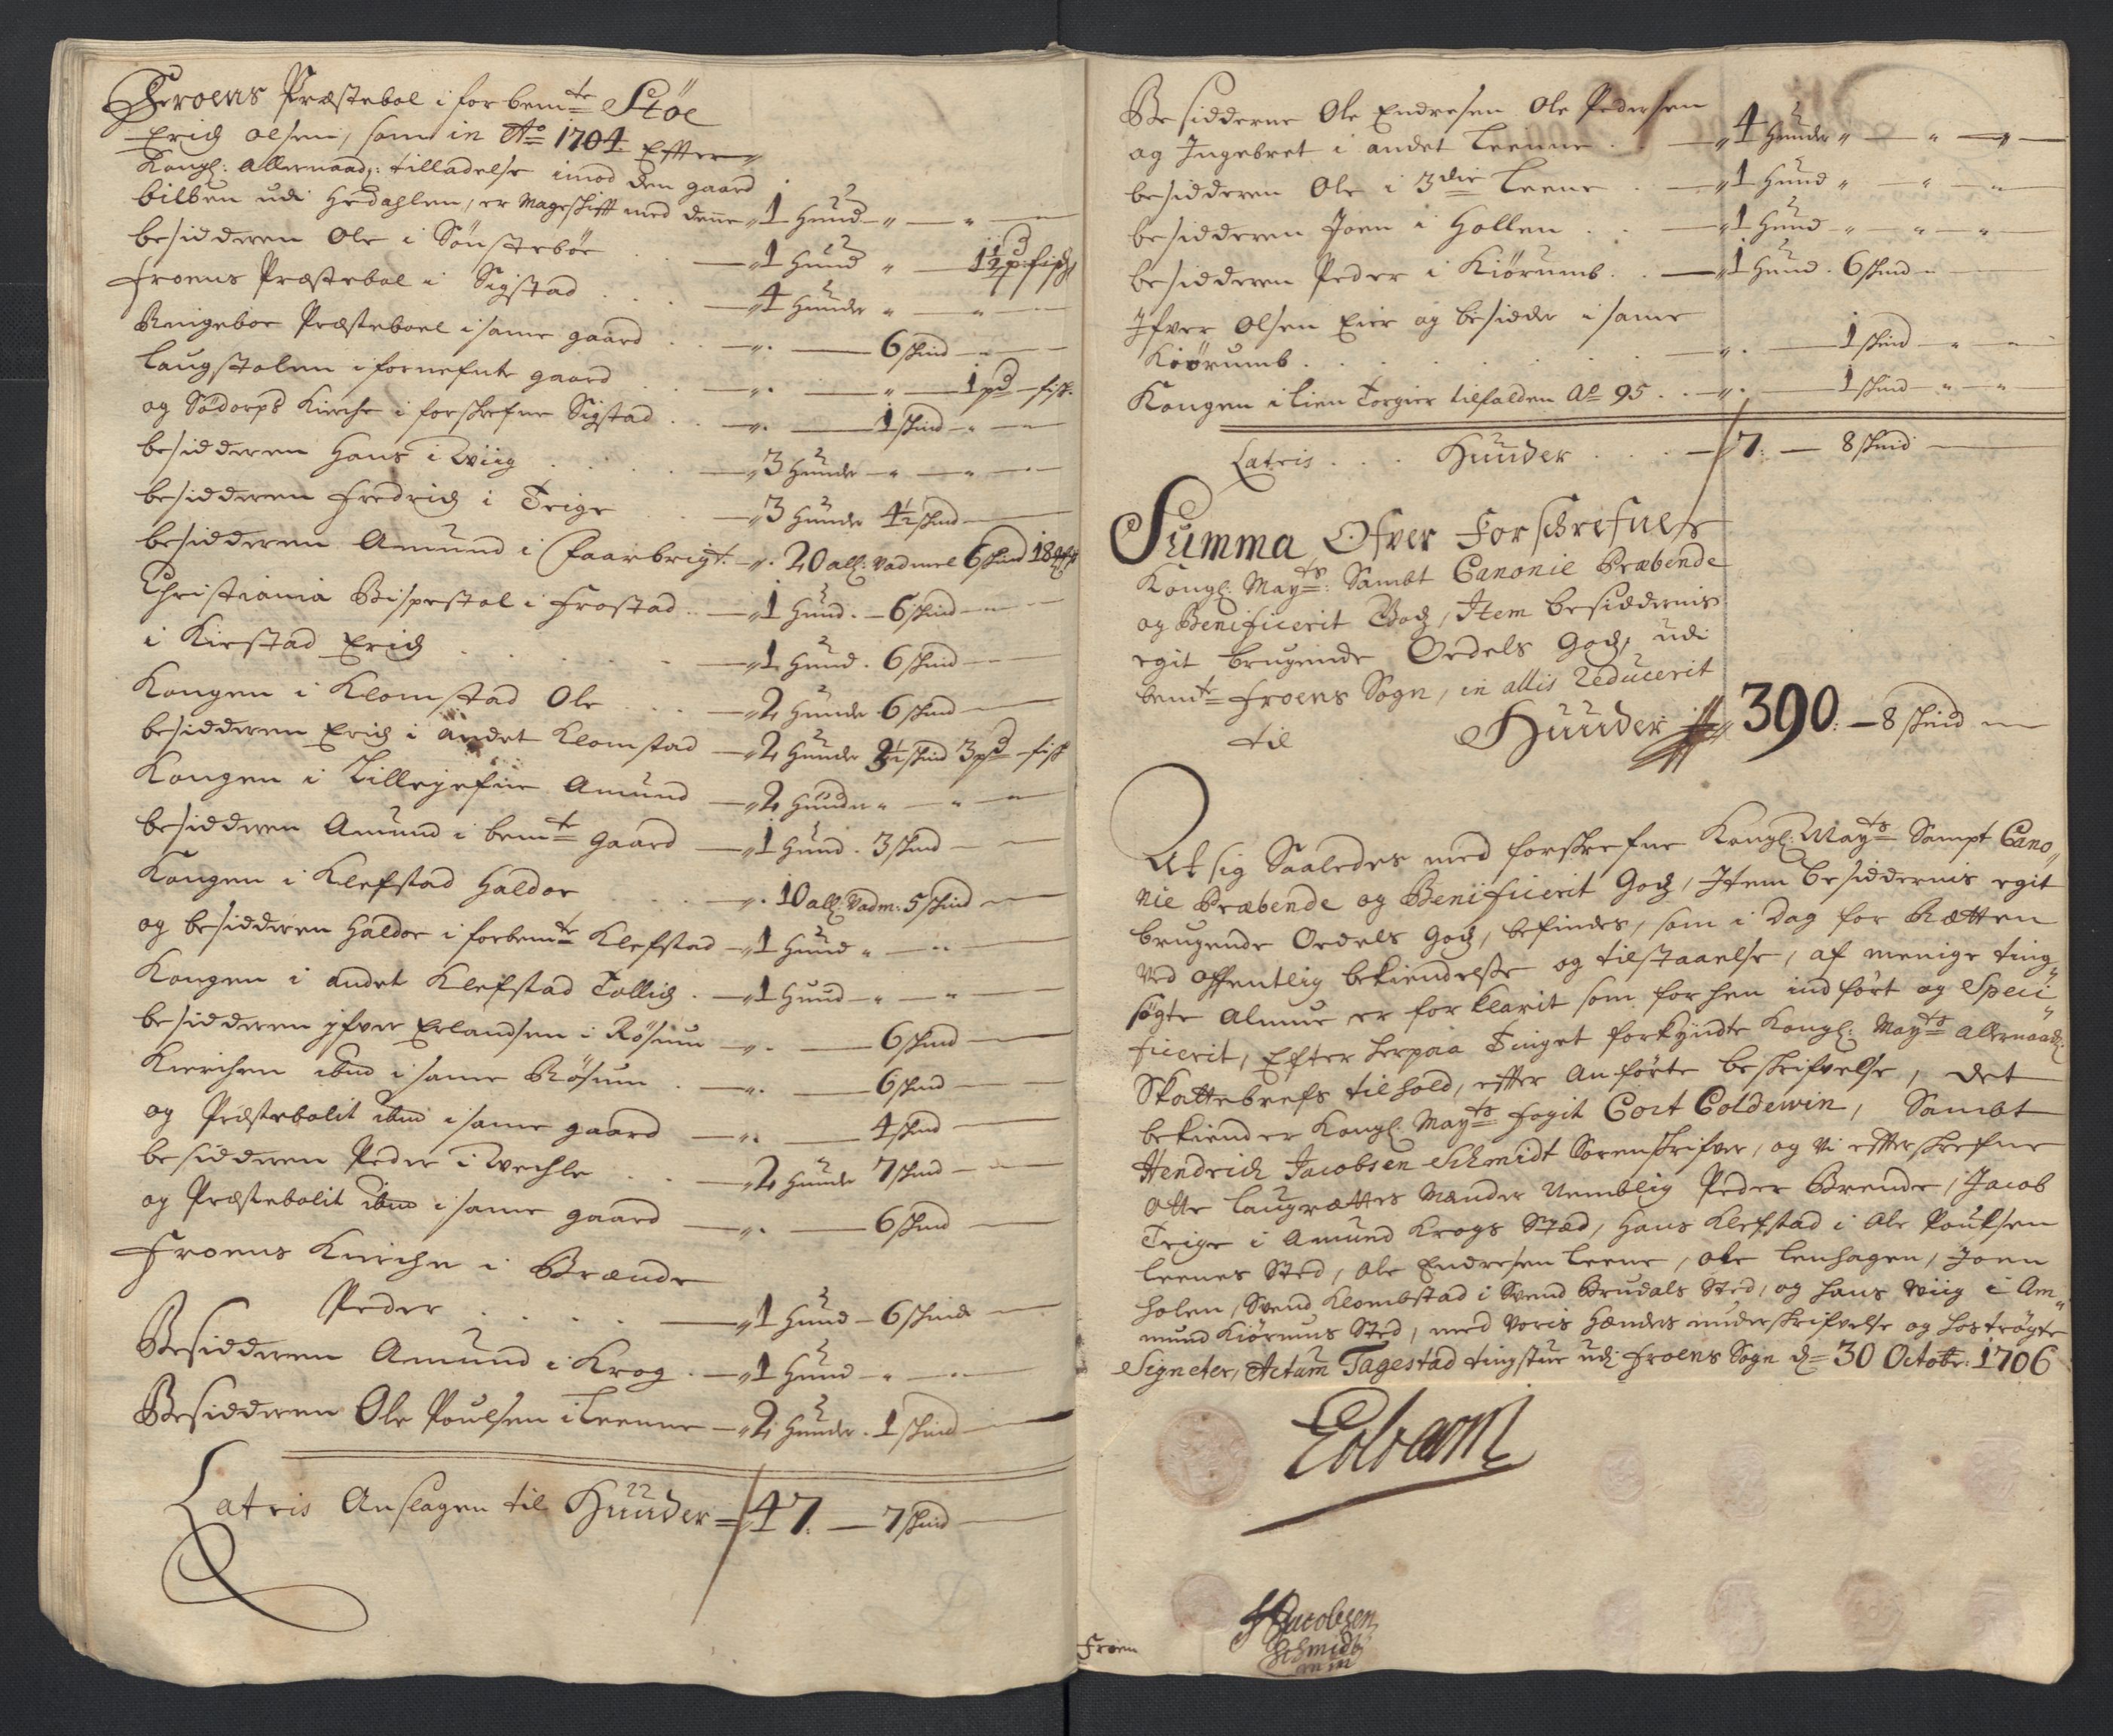 Froens Præstebol i forbem:te Stöe
Erich Olsen, som in Ao 1704 Effter
Kongl: Allernaad: tilladelse imod den gaard
bilben udi Hedahlen, er Mageschifft med denne „ 1 Hund „ — „ —
besidderen Ole i Sönsteböe . . — „ 1 Hund „ — 1½ p: fisch
Froens Præstebol i Sigstad . . . — „ 4 Hunder „ — „ —
Ringeboe Præsteboel i same gaard . . — „ . — 6 skind — „ —
Laugstolen i fornefnte gaard . . — „ . — „ — 1 pd fisk.
og Södorps Kirche i forskrefne Sigstad . . — „ . — 1 skind — „ —
besidderen Hans i Wiig . . . . — „ 3 Hunder — „ — „ —
besidderen Fredrich i Teige . . — „ 3 Hunder 4½ skind —
besidderen Amund i Faarbrigt. — „ . 20 all: Vadmel 6 skind 18
Christiania Bispestol i Frostad . . — „ 1 Hund . — 6 skind —
i Kirstad Erich . . . . . — „ 1 Hund . 6 skind —
Kongen i Klomstad Ole . . . — „ 2 Hunder 6 skind —
besidderen Erich i andet Klomstad — „ 2 Hunder skind 3 pd fisk
Kongen i Lillegefne Amund — „ 2 Hunder „ — „ —
besidderen Amund i bem:te gaard — „ 1 Hund . 3 skind —
Kongen i Klefstad Haldor . . . — „ . 10 all: Vadm: 5 skind —
og besidderen Haldor i forbem:te Klefstad — „ 1 Hund „ — „ —
Kongen i andet Klefstad Tollich . — „ 1 Hund — „ — „ —
besidderen Ifver Erlandsen i Rösum — „ . — 6 skind —
Kierchen ibm i same Rösum . — „ . — 6 skind —
og Præstebolit ibm i same gaard — „ . — 4 skind —
besidderen Peder i Wechle . . — „ 2 Hunder 7 skind — „ —
og Præstebolit ibm i same gaard — „ . — 6 skind —
Froens Kierche i Brænde
Peder . . . . — „ 1 Hund — 6 skind —
Besidderen Amund i Krog . — „ 1 Hund — „ — „ —
Besidderen Ole Poulsen i Leenne — „ 2 Hunder . 1 skind —
Latris Anslagen til Hunder = 47. — 7 skind —
Besidderne Ole Endresen Ole Pedersen
og Ingebret i andet Leenne . . — „ 4 Hunder „ — „ —
besidderen Ole i 3die Leene . — „ 1 Hund „ — „ —
besidderen Joen i Hollen . . — „ 1 Hund — „ — „ —
besidderen Peder i Kiörumb . . — „ 1 Hund . 6 skind „ —
Ifver Olsen Eier og besidder i same
Kiörumb . . . . . . — „ . — 1 skind — „ —
Kongen i Lien Torgier tilfalden Ao 95 . . — „ . — 1 skind — „ —
Latris . . . Hunder . . . — 7: — 8 skind —
Summa Ofver Forschrefne
Kongl: May:ts Sambt Canonie Præbende
og Benificerit Godz, Item besiddernis
egit brugende Ordels Godz, udi
bem:te Froens Sogn, in allis Reducerit
til Hunder „ 390: — 8 skind —
At sig Saaledes med forskrefne Kongl: May:ts Sampt Cano„
nie Præbende og Benificerit Godz, Item besiddernis egit
brugende Ordels Godz, befindes, som i Dag for Rætten
ved offentlig bekiendelse og tilstaaelse, af menige ting„
søgte Almue er forklarit som forhen indført og Speci„
ficerit, Efter her paa Tinget forkyndte Kongl: May:ts Allernaad:
Skattebrefs tilhold, effter anførte beskrifvelse, det
bekiender Kongl: May:ts Fogit Cort Coldewin, Sambt
Hendrich Jacobsen Schmidt Sorenskrifver, og vi efterskrefne
otte laugrættes Mænder Nemblig Peder Brende, Jacob
Teige i Amund Krogs Sted, Hans Klefstad i Ole Poulsen
Leenes Sted, Ole Endresen Leene, Ole Lenhagen, Joen
Holen, Svend Klombstad i Svend Brudals Sted, og Hans Wiig i Am„
mund Kiørums Sted, med voris Hænders underskrifvelse og hostrøgte
Signeter, Actum Tagestad tingstue udj Froens Sogn d= 30 Octobr: 1706
HJacobsen
Schmidt
m m
Froen